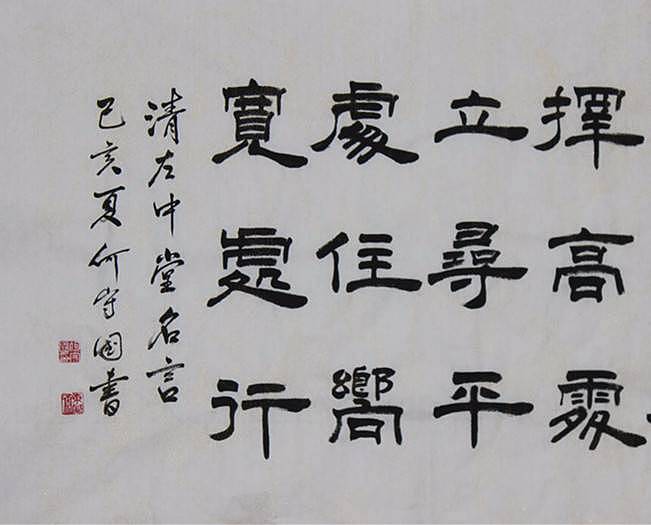 擇高處
立尋平
處住嚮
寬處行
清左中堂名言
己亥夏何守國書